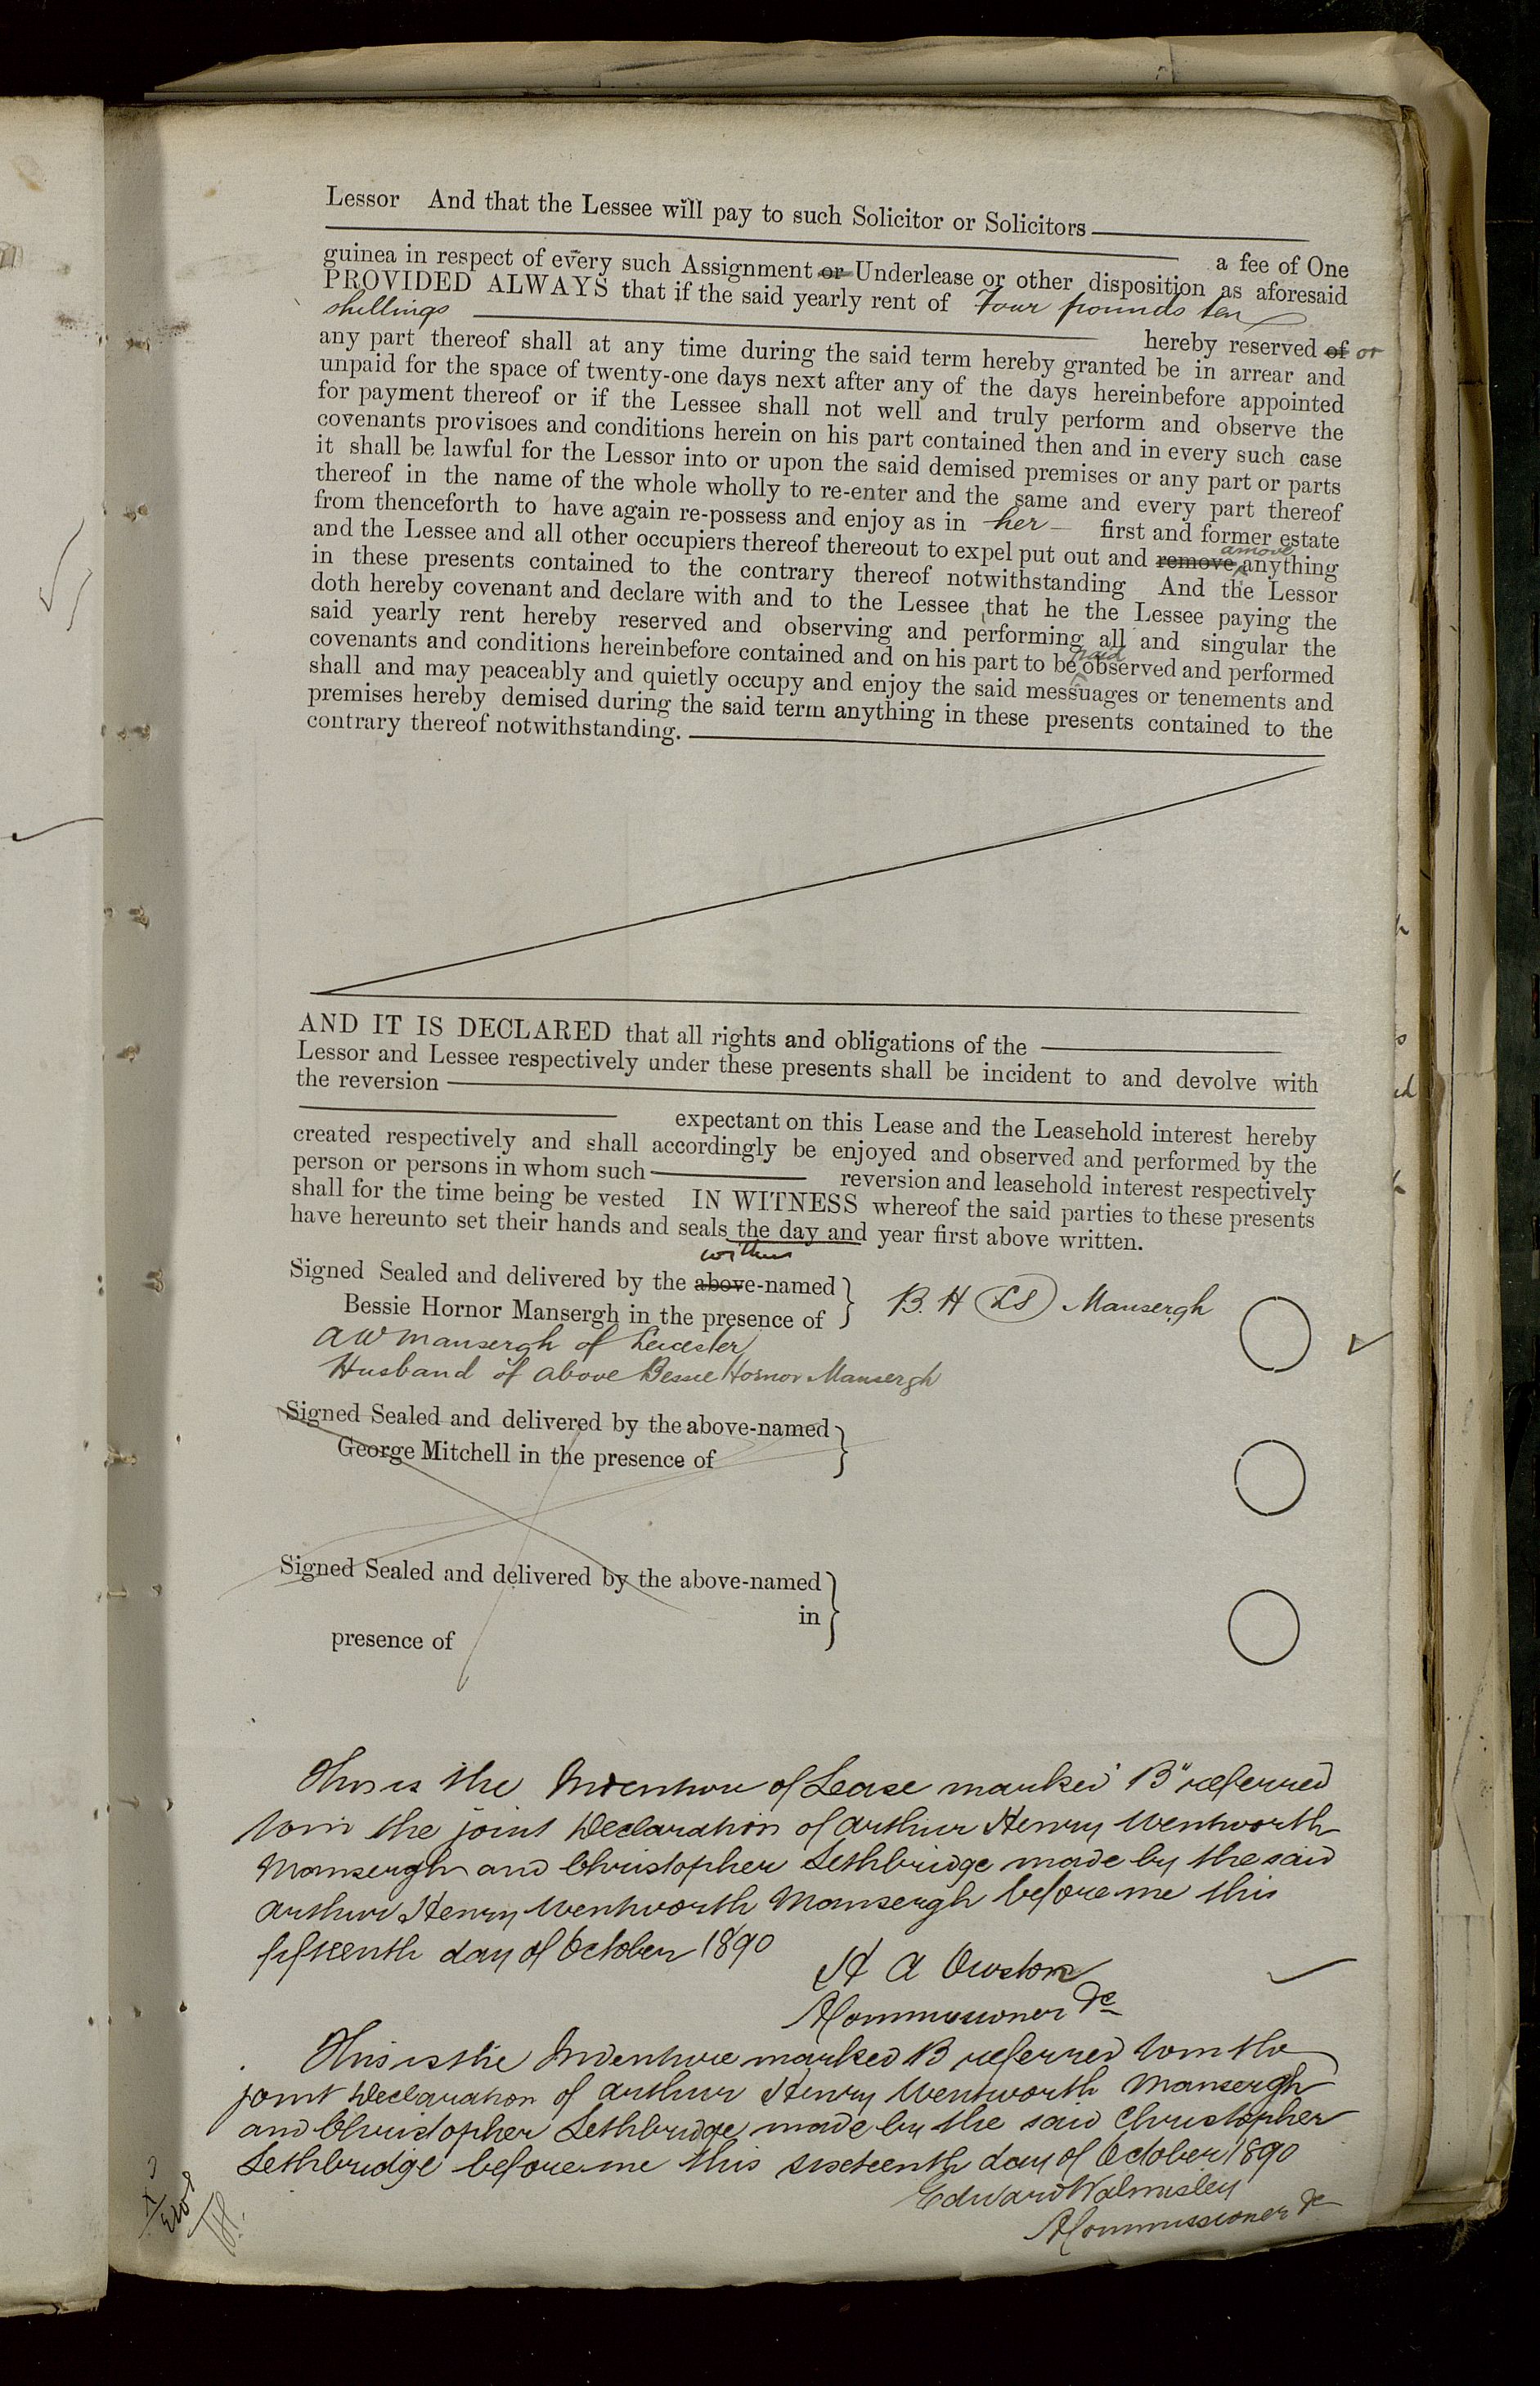 Lessor And that the Lessee will pay to such Solicitor or Solicitors
a fee of One
guinea in respect of every such Assignment or Underlease or other disposition as aforesaid
PROVIDED ALWAYS that if the said yearly rent of Four pounds ten
shillings
hereby reserved of or
any part thereof shall at any time during the said term hereby granted be in arrear and
unpaid for the space of twenty-one days next after any of the days hereinbefore appointed
for payment thereof or if the Lessee shall not well and truly perform and observe the
covenants provisoes and conditions herein on his part contained then and in every such case
it shall be lawful for the Lessor into or upon the said demised premises or any part or parts
thereof in the name of the whole wholly to re-enter and the same and every part thereof
from thenceforth to have again re-possess and enjoy as in her first and former estate
and the Lessee and all other occupiers thereof thereout to expel put out and remove amove anything
in these presents contained to the contrary thereof notwithstanding And the Lessor
doth hereby covenant and declare with and to the Lessee that he the Lessee paying the
said yearly rent hereby reserved and observing and performing all and singular the
covenants and conditions hereinbefore contained and on his part to be paid observed and performed
shall and may peaceably and quietly occupy and enjoy the said messuages or tenements and
premises hereby demised during the said term anything in these presents contained to the
contrary thereof notwithstanding.
AND IT IS DECLARED that all rights and obligations of the
Lessor and Lessee respectively under these presents shall be incident to and devolve with
the reversion
expectant on this Lease and the Leasehold interest hereby
created respectively and shall accordingly be enjoyed and observed and performed by the
person or persons in whom such reversion and leasehold interest respectively
shall for the time being be vested IN WITNESS whereof the said parties to these presents
have hereunto set their hands and seals the day and year first above written.
within
Signed Sealed and delivered by the above-named
Bessie Hornor Mansergh in the presence of
B. H LS Mansergh
AW Mansergh of Leicester
Husband of above Bessie Hornor Mansergh
Signed Sealed and delivered by the above-named
George Mitchell in the presence of
Signed Sealed and delivered by the above-named
in
presence of
This is the Indenture of Lease marked "B" referred
to in the joint Declaration of Arthur Henry Wentworth
Mansergh and Christopher Lethbridge made by the said
Arthur Henry Wentworth Mansergh before me this
fifteenth day of October 1890
H A Owston
A Commissioner &c
This is the Indenture marked B referred to in the
joint Declaration of Arthur Henry Wentworth Mansergh
and Christopher Lethbridge made by the said Christopher
Lethbridge before me this sixteenth day of October 1890
Edward Walmisley
A Commissioner &c